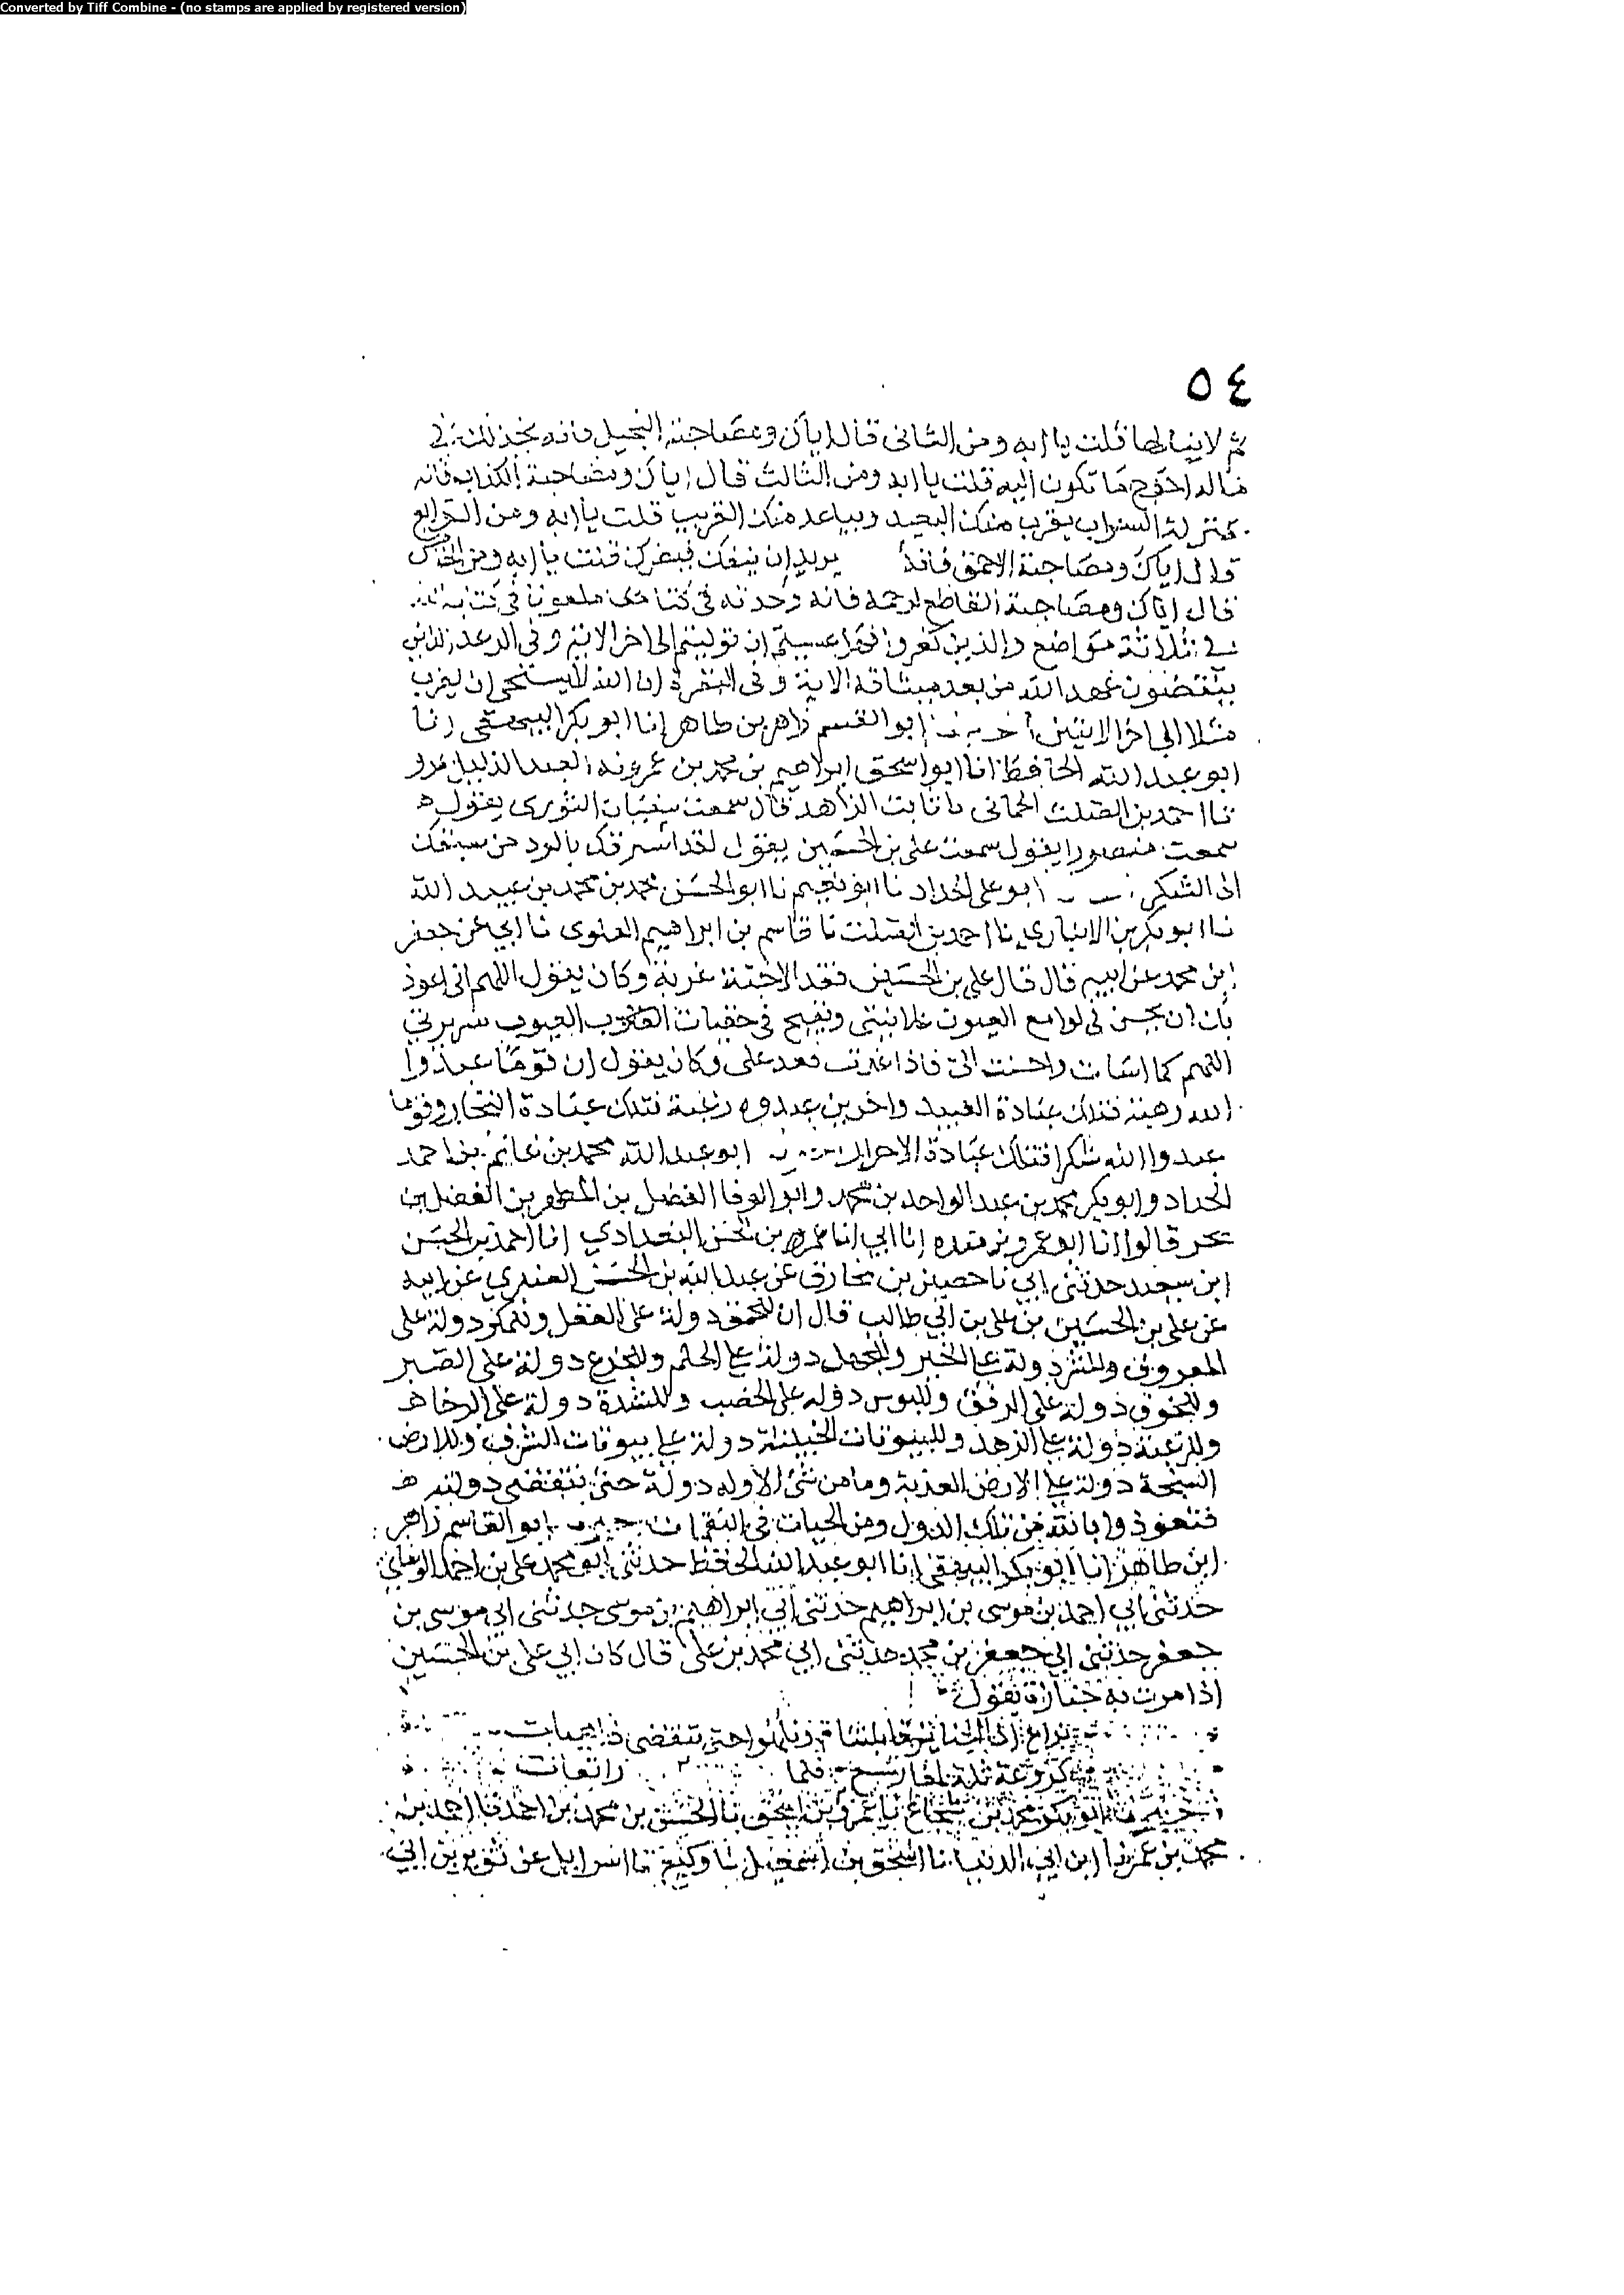 Converted by Tiff Combine - (no stamps are applied by registered version)
٥٤
ثم لا ينالها قلت يا ابه ومن الثانى قال اياك ومصاحبة البخيل فانه يخذلك فى
ماله احوج ما تكون اليه قلت يا ابه ومن الثالث قال اياك ومصاحبة الكذاب فانه
بمنزلة السراب يقرب منك البعيد ويباعد منك القريب قلت يا ابه ومن الرابع
قال اياك ومصاحبة الاحمق فانه يريد ان ينفعك فيضرك قلت يا ابه ومن الخامس
قال اياك ومصاحبة القاطع لرحمه فانه وجدته فى ملعونا فى كتاب الله
فى ثلاثة مواضع والذين كفروا فهل عسيتم ان توليتم الى اخر الاية وفى الرعد الذين
ينقضون عهد الله من بعد ميثاقه الاية وفى البقرة ان الله لا يستحى ان يضرب
مثلا الى اخر الايتين ابو القسم زاهر بن طاهر انا ابو بكر البيهقى انا
ابو عبد الله الحافظ انا ابو اسحق ابراهيم بن محمد بن العبد الذليل بمرو
نا احمد بن الصلت الحمانى نا ثابت الزاهد قال سمعت سفيان الثورى يقول
سمعت منصورا يقول سمعت على بن الحسين يقول لقد استرقك بالود من سبقك
الى الشكر ابو على الحداد نا ابو نعيم نا ابو الحسن محمد بن محمد بن عبيد الله
نا ابو بكر بن الانبارى نا احمد بن الصلت نا قاسم بن ابراهيم العلوى نا ابى عن جعفر
ابن محمد عن ابيه قال قال على بن الحسين فقد الاحبة غربة وكان يقول اللهم انى اعوذ
بك ان تحسن فى لوامع العيون علانيتى وتقبح فى خفيات العيوب سريرتى
اللهم كما اسات واحسنت الى فاذا عدت فعد على وكان يقول ان قوما عبدوا
الله رهبة فتلك عبادة العبيد واخرين عبدوه رغبة فتلك عبادة التجار وقوما
عبدوا الله شكرا فتلك عبادة الاحرار ابو عبد الله محمد بن غانم بن احمد
الحداد وابو بكر محمد بن عبد الواحد بن محمد وابو الوفا الفضل بن المطهر بن الفضل بن
بحر قالوا انا ابو عمرو بن منده انا ابى انا بن الحسن البغدادي انا احمد بن الحسن
ابن سعيد حدثنى ابي نا حصين بن مخارق عن عبد الله بن الحسن العنبري عن ابيه
عن على بن الحسين بن على بن ابي طالب قال ان للحمق دولة على العقل وللمنكر دولة على
المعروف وللشر دولة على الخير وللجهل دولة على الحلم وللجزع دولة على الصبر
وللخرق دولة على الرفق وللبوس دوله على الخصب وللشدة دولة على الرخا
وللرغبة دولة على الزهد وللبيوتات الخبيثة دولة على بيوتات الشرف وللارض
السبخة دولة على الارض العذبة وما من شئ الا وله دولة حتى تنقضى دولته
فتعوذوا بالله من تلك الدول ومن الحيات فى النقمات ابو القاسم زاهر
ابن طاهر انا ابو بكر البيهقى انا ابو عبد الله الحافظ حدثنى ابو محمد على بن احمد
حدثنى ابي احمد بن موسى بن ابراهيم حدثنى ابي ابراهيم بن موسى حدثنى ابى موسى بن
جعفر حدثنى ابي جعفر بن محمد حدثنى ابي محمد بن على قال كان ابي على بن الحسين
اذا مرت به جنازة يقول
نراع اذا الجنائز قابلتنا ونلهوا حتى تنقضى ذاهبات
كروعة ثلة لمغار سبع فلما راتعات
ابو بكر محمد بن شجاع نا عمرو بن اسحق نا الحسن بن محمد بن احمد نا احمد بن
محمد بن عمر نا ابن ابى الدنيا نا اسحق بن اسمعيل نا وكيع نا اسرايل عن ثوير بن ابى